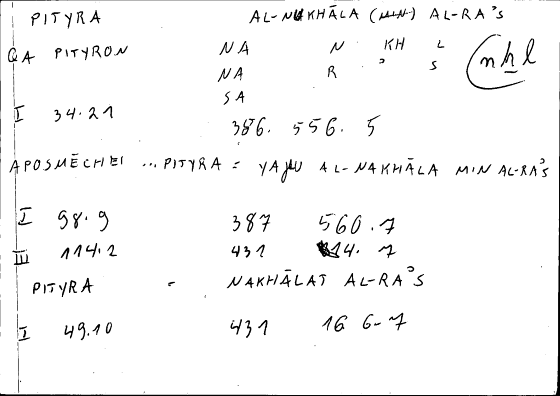 PITYRA AL-NUKHĀLA (MIN) AL-RA'S
QA PITYRON NA N KH L (nḫl)
NA R ' S
SA
I 34.21 386. 556. 5
APOSMĒCHEI ... PITYRA = AL-NAKHĀLA MIN AL-RA'S
I 98.9 387 560.7
III 114.2 431 14. 7
PITYRA = NAKHĀLAT AL-RA'S
I 49.10 431 16 6-7